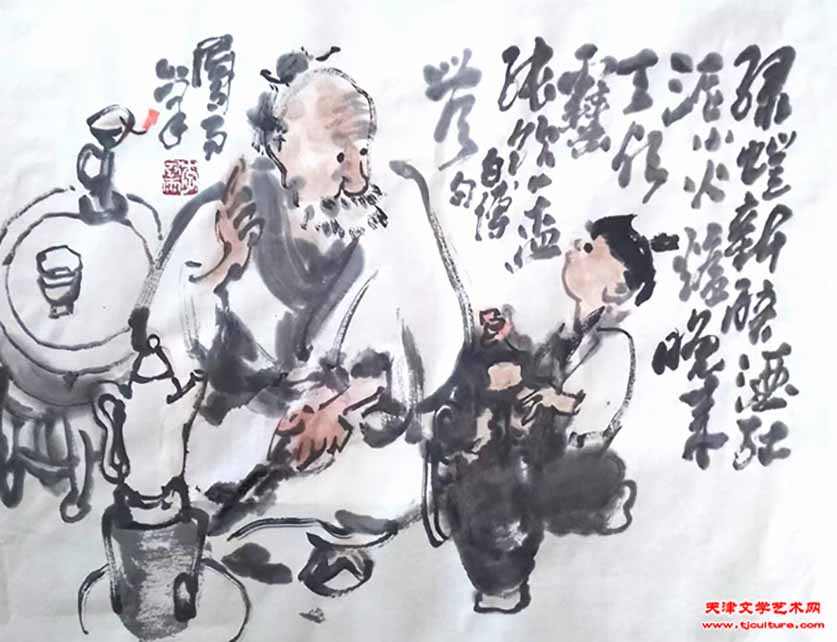 绿螘新醅酒红
泥小火爐
晚来
天欲
雪
能饮一盃
無
白傅
句
天津文学艺术网
www.tjculture.com